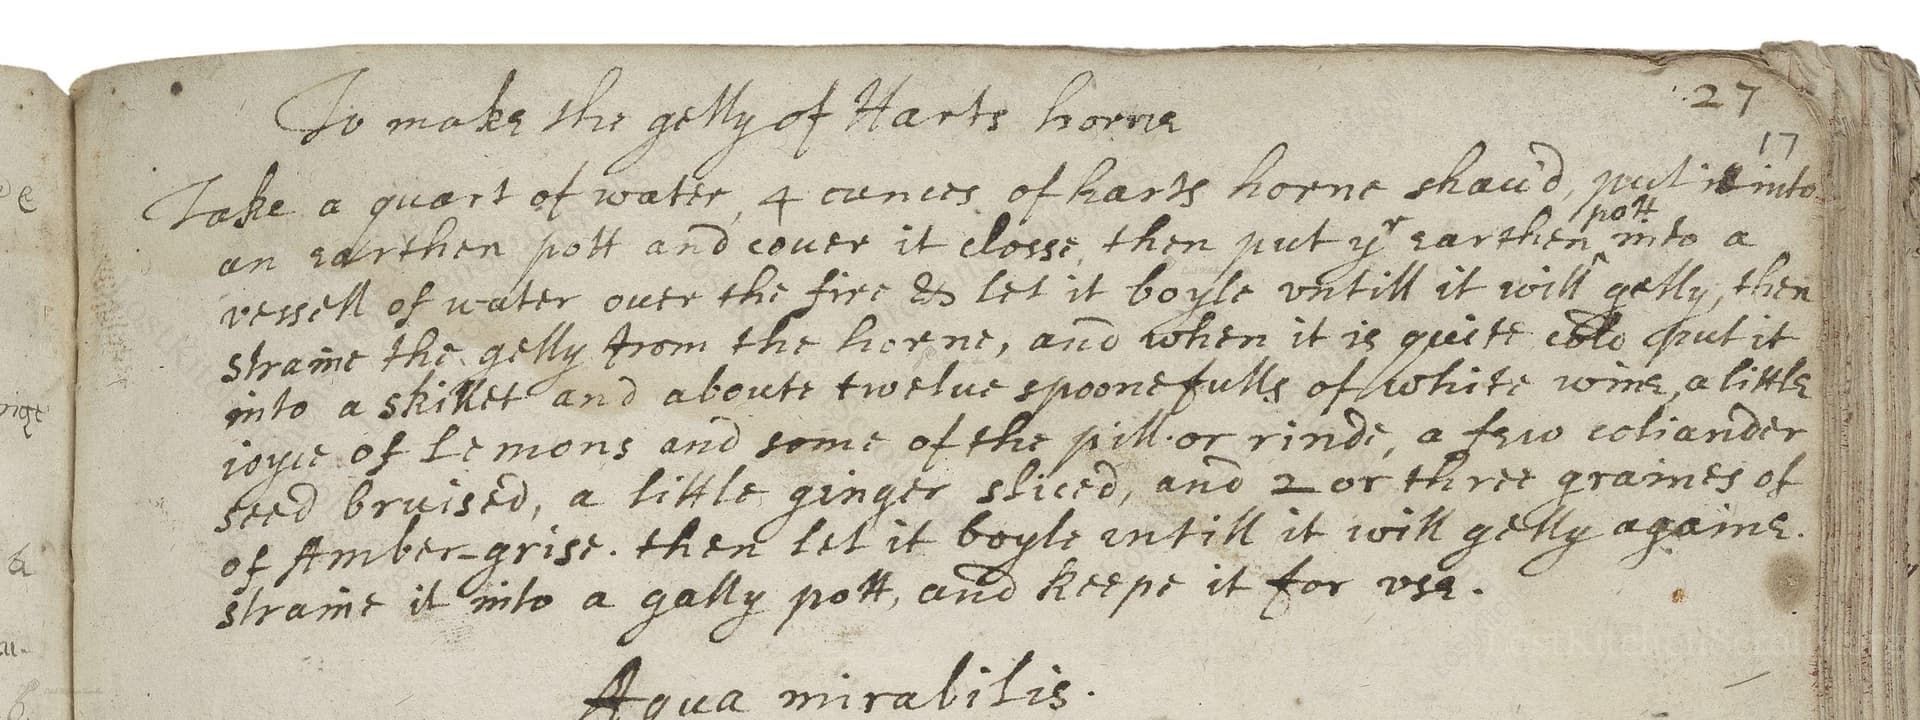 27
17
To make the gelly of Harts horne
Take a quart of water, 4 ounces of harts horne shau'd, put it into
an earthen pott and couer it closse, then put yr earthen pott into a
vessell of water ouer the fire & let it boyle vntill it will gelly, then
straine the gelly from the horne, and when it is quite cold put it
into a skillet and aboute twelue spoonefulls of white wine, a little
ioyce of Lemons and some of the pill or rinde, a few coliander
seed bruised, a little ginger sliced, and 2 or three graines of
of Amber-grise. then let it boyle vntill it will gelly againe.
straine it into a gally pott, and keepe it for vse.
Aqua mirabilis.